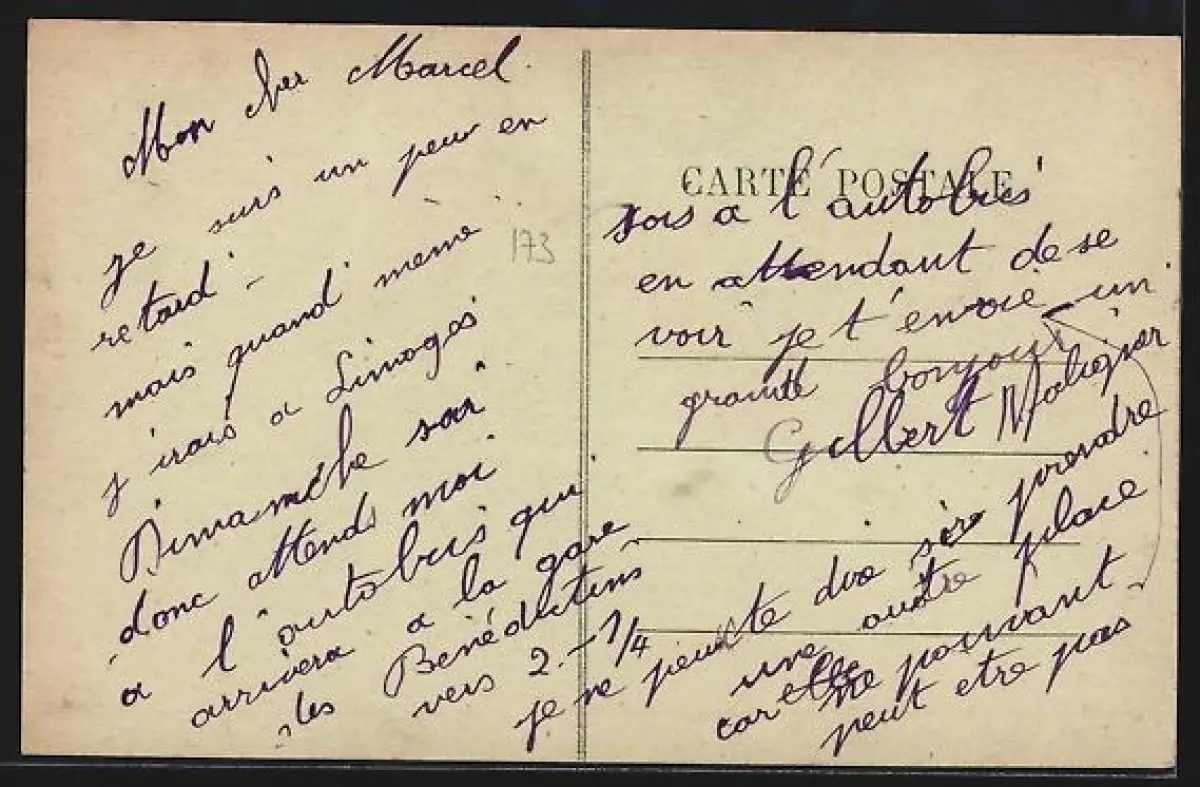 Mon cher Marcel
je suis un peu en
retard -
mais quand même
j'irais a Limoges
Dimamche soir
donc attends moi
a l'autobus qui
arrivera a la gare
des Bénédictins
vers 2 - 1/4
je ne peux te dire
une autre place
car elle ne pouvant
peut etre pas
prendre
173
CARTE POSTALE
sois a l'autobus
en attendant de se
voir je t'envoie un
grand bonjour
Gilbert